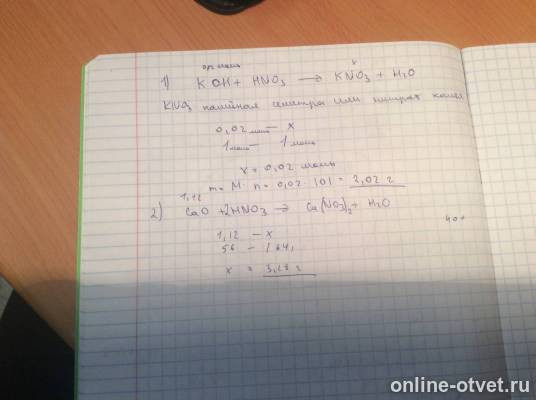 0,02 моль x
1) KOH + HNO₃ → KNO₃ + H₂O
KNO₃ калийная селитра или нитрат калия
0,02 моль — x
1 моль — 1 моль
x = 0,02 моль
m = M · n = 0,02 · 101 = 2,02 г
1,12
2) CaO + 2HNO₃ → Ca(NO₃)₂ + H₂O
1,12 — x
56 — 164,
x = 3,28 г
online-otvet.ru